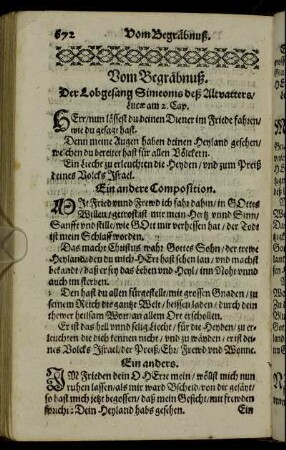 672 Vom Begräbnuß.
Vom Begräbnuß.
Der Lobgesang Simeonis deß Altvatters/
Lucæ am 2. Cap.
HErr/nun lässest du deinen Diener im Friede fahren/
wie du gesagt hast.
Denn meine Augen haben deinen Heyland gesehen/
welchen du bereitet hast für allen Völckern.
Ein Liecht zu erleuchten die Heyden/und zum Preiß
deines Volcks Israel.
Ein andere Composition.
MIt Fried vnnd Frewd ich fahr dahin/ in GOttes
Willen/getrost ist mir mein Hertz vnnd Sinn/
Sanfft vnd stille/wie GOtt mir verheissen hat/ der Todt
ist mein Schlaff worden.
Das macht Christus wahr Gottes Sohn/der trewe
Heyland/den du mich HErr hast sehen lan/ vnd machst
bekandt/ daß er sey das Leben vnd Heyl/ inn Noht vnnd
auch im sterben.
Den hast du allen fürgestellt/mit grossen Gnaden/ zu
seinem Reich die gantze Welt/ heissen laden/ durch dein
thewer heilsam Wort/an allem Ort erschollen.
Er ist das hell vnnd selig Liecht/ für die Heyden/ zu er-
leuchten die dich kennen nicht/ vnd zu wäyden/ er ist dei-
nes Volcks Israel/ der Preiß/Ehr/ Frewd vnd Wonne.
Ein anders.
IM Frieden dein O HErre mein/ wöllst mich nun
ruhen lassen/als mir ward Bscheid/von dir geläyt/
so hast mich jetzt begossen/ daß mein Gesicht/mit frewden
spricht: Dein Heyland habs gesehen.
Ein